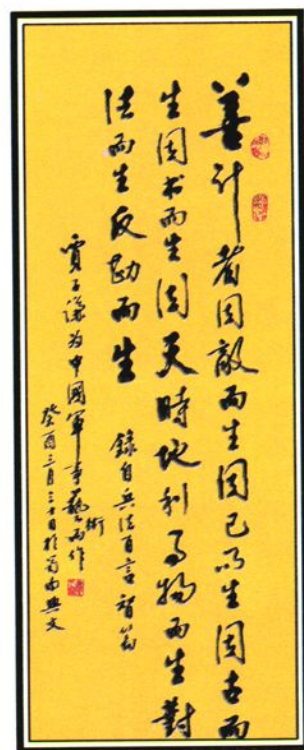 善計者因敵而生因己而生因古而
生因書而生因天時地利事物而生對
法而生反勘而生
錄自兵法百言智篇
賈玉濂為中國軍事藝術而作
癸酉三月三十日於蜀南興文